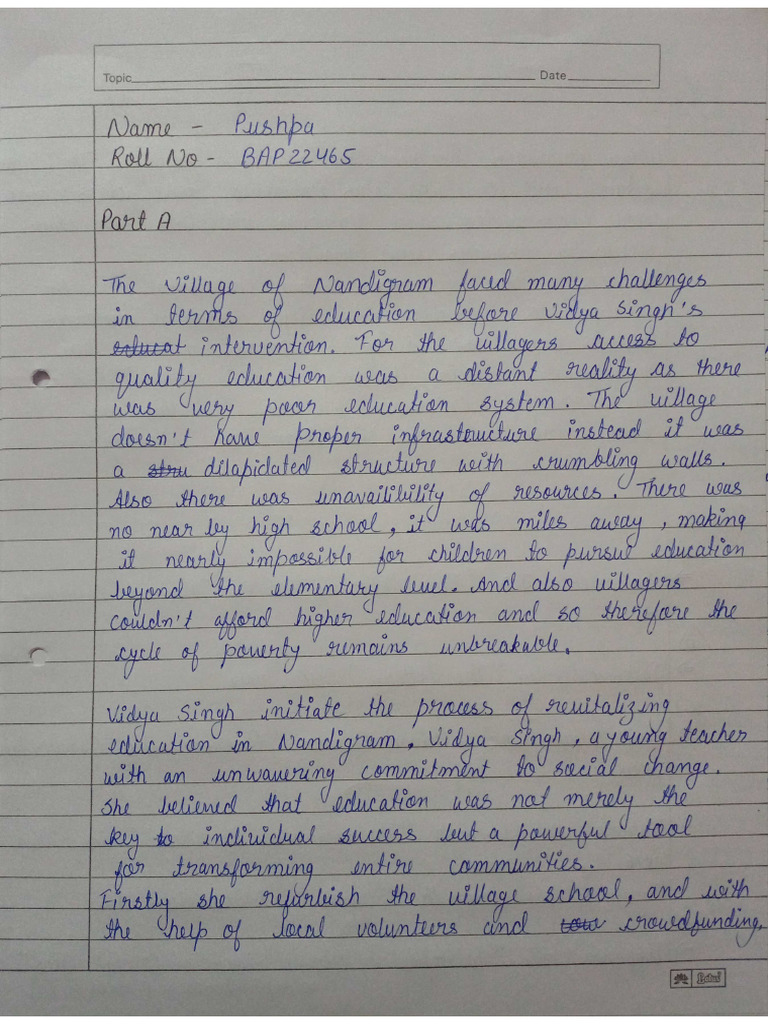 Topic Date
Name - Pushpa
Roll No - BAP22465
Part A
The village of Nandigram faced many challenges
in terms of education before Vidya Singh's
educat intervention. For the villagers access to
quality education was a distant reality as there
was very poor education system. The village
doesn't have proper infrastructure instead it was
a stru dilapidated structure with crumbling walls.
Also there was unavailibility of resources. There was
no near by high school, it was miles away, making
it nearly impossible for children to pursue education
beyond the elementary level. And also villagers
couldn't afford higher education and so therefore the
cycle of poverty remains unbreakable.
Vidya Singh initiate the process of revitalizing
education in Nandigram. Vidya Singh, a young teacher
with an unwavering commitment to social change.
She believed that education was not merely the
key to individual success but a powerful tool
for transforming entire communities.
Firstly she refurbish the village school, and with
the help of local volunteers and crowdfunding,